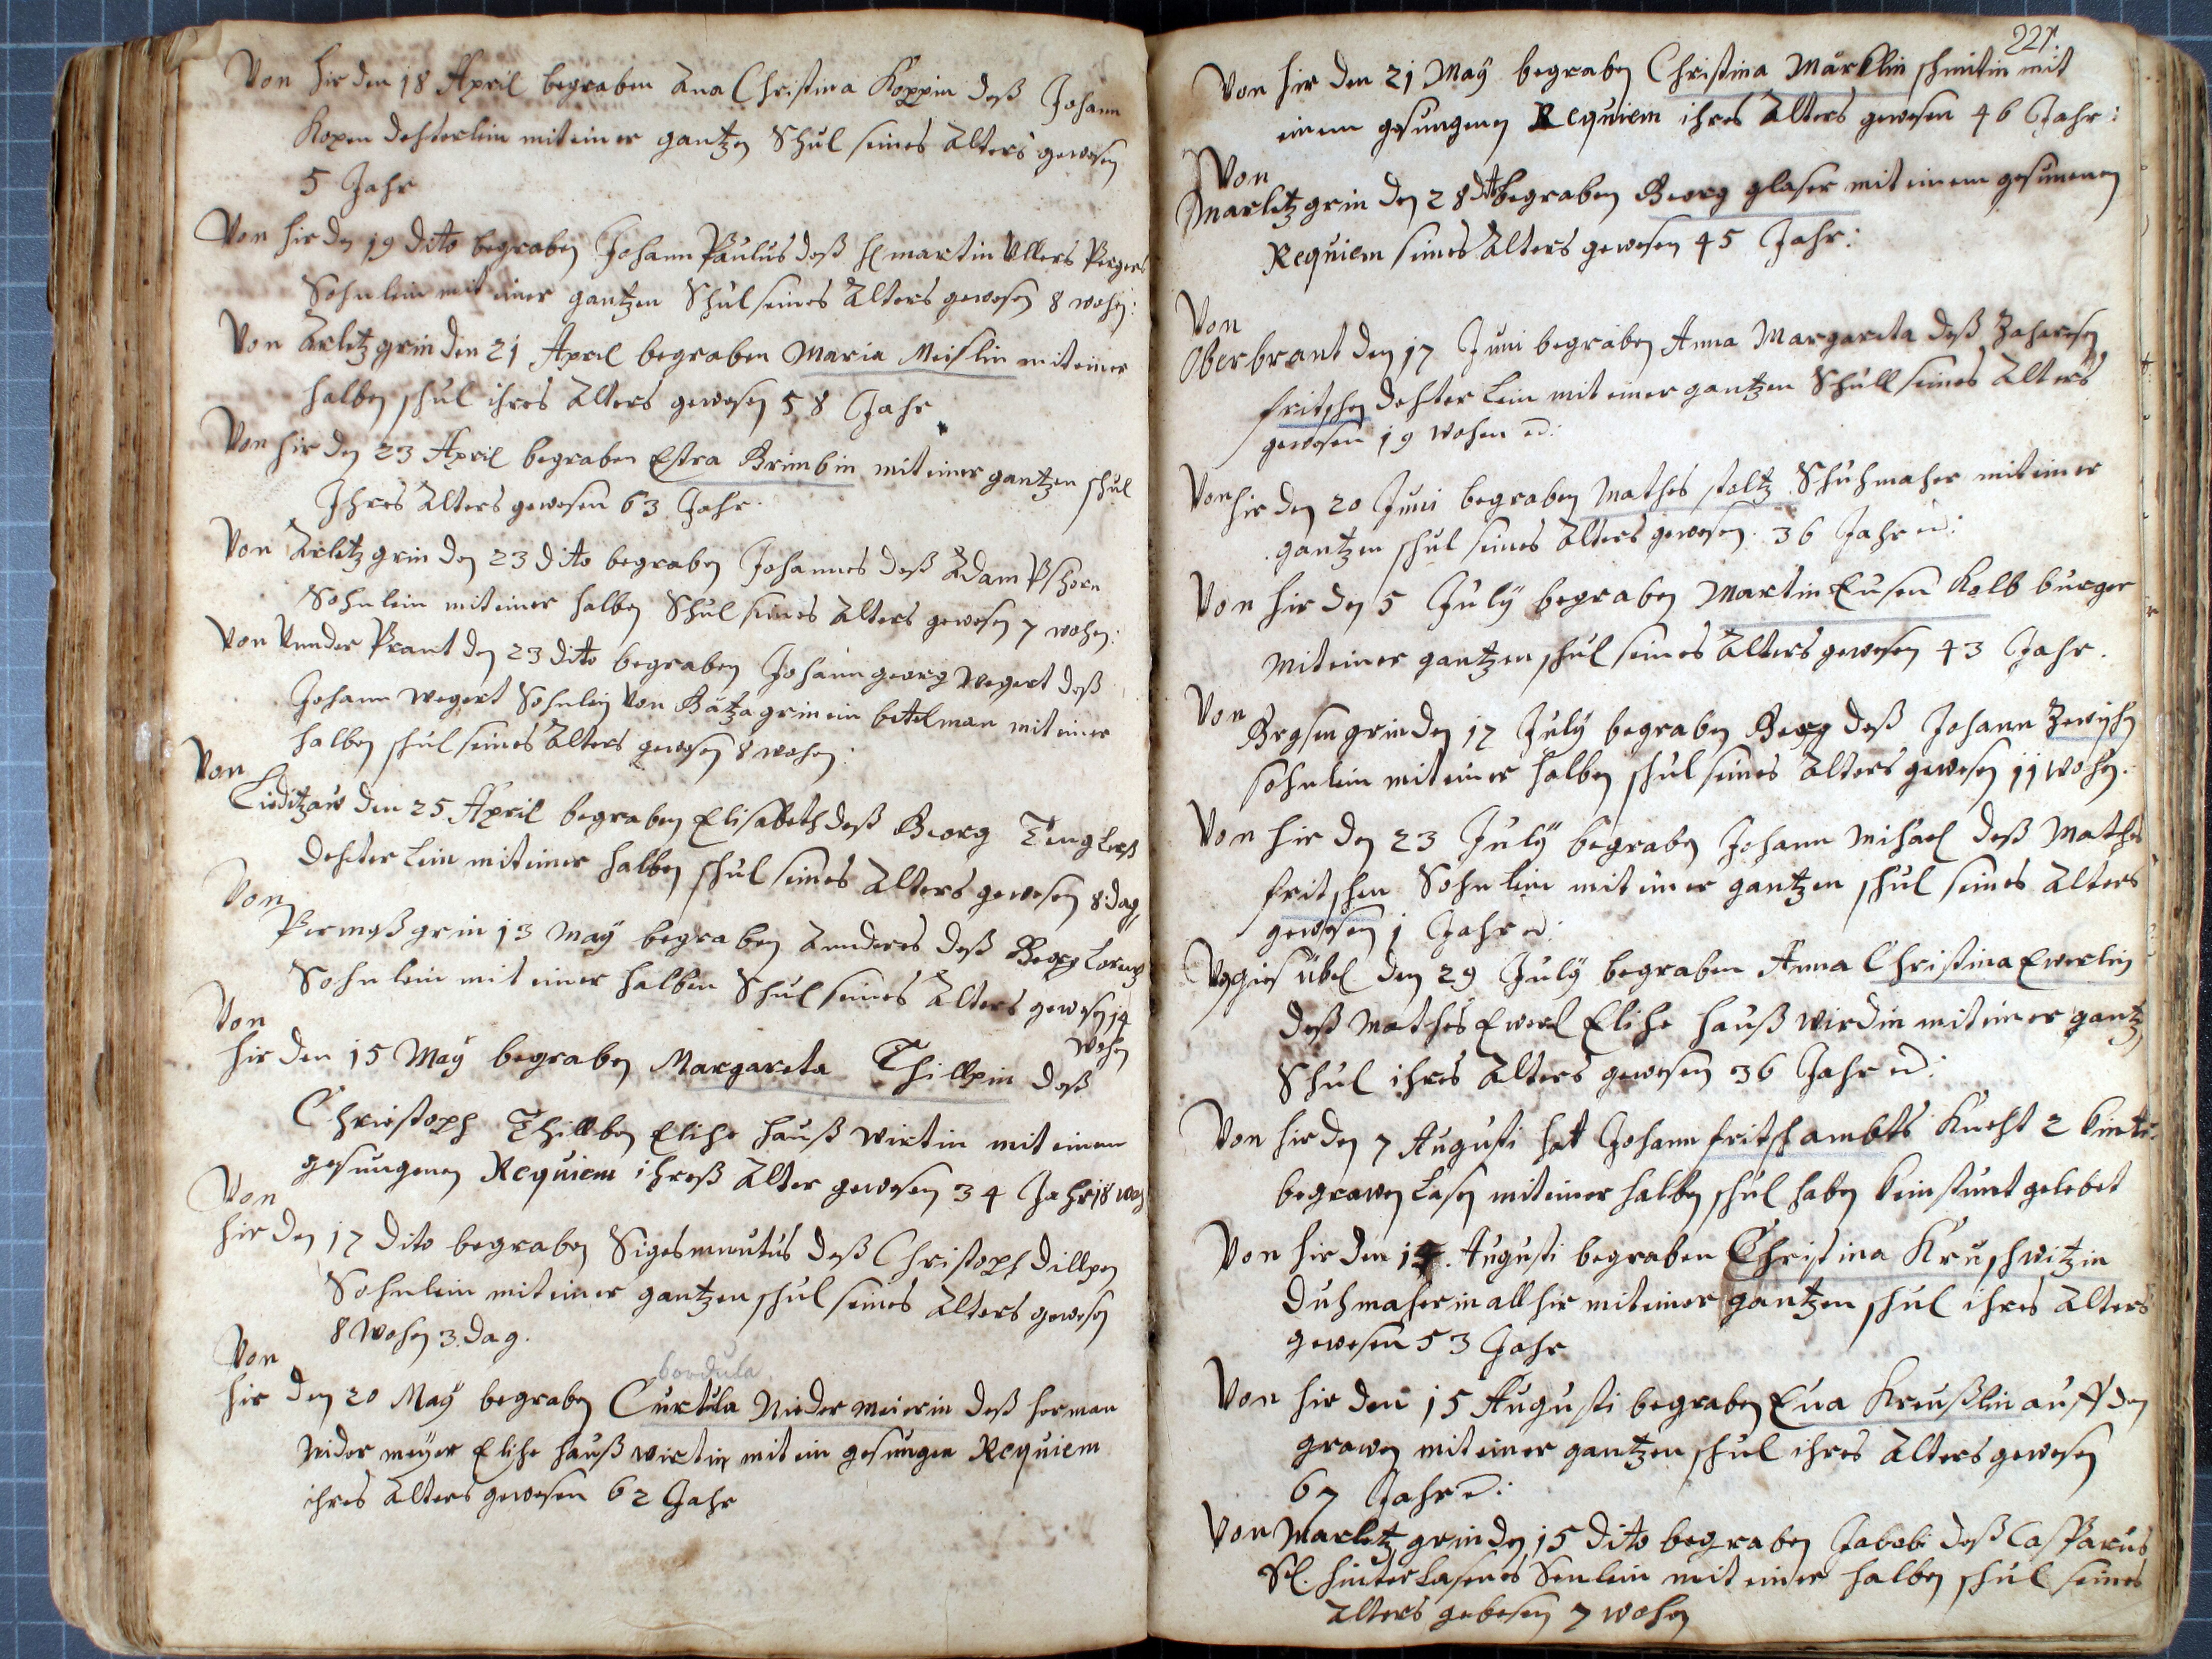 Von hir den 18 April begraben Ana Christina Koppin deß Johann
Kopen dehterlein mit einer gantzen Schul seines Alters gewesen
5 Jahr
Von hir den 19 dito begraben Johann Paulus deß H martin Ullers Pergers
Sohnlein mit einer gantzen Schul seines Alters gewesen 8 wohen:
Von Arletzgrin den 21 April begraben Maria Meislin mit einer
halben schul ihres Alters gewesen 58 Jahr
Von hir den 23 April begraben Estra Brimbin mit einer gantzen schul
Ihres Alters gewesen 63 Jahr.
Von Arletzgrin den 23 dito begraben Johannes deß Adam Pschorn
Sohnlein mit einer halben Schul seines Alters gewesen 7 wohen:
Von Vnnder Prant den 23 dito begraben Johann georg Wegert deß
Johann Wegert Sohnlein Von Bätzagrin ein betelman mit einer
halben schul seines Alters gewesen 8 wohen:
Von
Lieditzaw den 25 April begraben Elisabeth deß Georg Tenglerß
dehterlein mit einer halben schul seines Alters gewesen 8 dag
Von
Permeßgrin 13 May begraben Anderes deß Georg Lorentz
Sohnlein mit einer halben Schul seines Alters gewesen 14
wohen
Von
hir den 15 May begraben Margareta Thillpin deß
Christoph Thillben Elihe haußwirtin mit einem
gesungenen Requiem ihreß Alter gewesen 34 Jahr 18 woh
Von
hir den 17 dito begraben Sigesmuntus deß Christoph Dillpen
Sohnlein mit einer gantzen schul seines Alters gewesen
8 Wohen 3 dag.
Von
bordula
hir den 20 May begraben Curtula Nieder meierin deß herman
Nider meyer Elihe haußwirtin mit ein gesungen Requiem
ihres Alters gewesen 62 Jahr
221.
Von hir den 21 May begraben Christina Märklin schmitin mit
einem gesungenen Requiem ihres Alters gewesen 46 Jahr:
Von
Marletzgrin den 28 dito begraben Georg glaser mit einem gesunenen
Requiem seines Alters gewesen 45 Jahr:
Von
Oberbrant den 17 Juni begraben Anna Margareta deß Zahereßen
fritschen dehterlein mit einer gantzen Schull seines Alters
gewesen 19 Wohen
Von hir den 20 Juni begraben Mathes stoltz Schuhmaher mit einer
gantzen schul seines Alters gewesen. 36 Jahr
Von hir den 5 July begraben Martin Eusen Kolb burger
Mit einer gantzen schul seines Alters gewesen 43 Jahr.
Von
Grasengrin den 17 July begraben Georg deß Johann
sohnlein mit einer halben schul seines Alters gewesen 11 wohen.
Von hir den 23 July begraben Johann Mihael deß Mathes
fritschen Sohnlein mit einer gantzen schul seines Alters
gewesen 1 Jahr
den 29 July begraben Anna Christina Ewerlin
deß Mathes Ewerl Elihe hauß wirdin mit einer gantz
Schul ihres Alters gewesen 36 Jahr
Von hir den 7 Augusti hat Johann fritsch ambts Kneht 2 kinter
begrawen lasen mit einer halben schul haben kein stunt gelebet
Von hir den 14. Augusti begraben Christina Kruschwitzin
duhmaherin allhir mit einer gantzen schul ihres Alters
gewesen 53 Jahr
Von hir den 15 Augusti begraben Eua Kreußlin auff den
grawen mit einer gantzen schul ihres Alters gewesen
67 Jahr
Von Marletzgrin den 15 dito begraben Jakobi deß Casparus
Sl. hinterlasenes Senlein mit einer halben schul seines
Alters gebesen 7 wohen